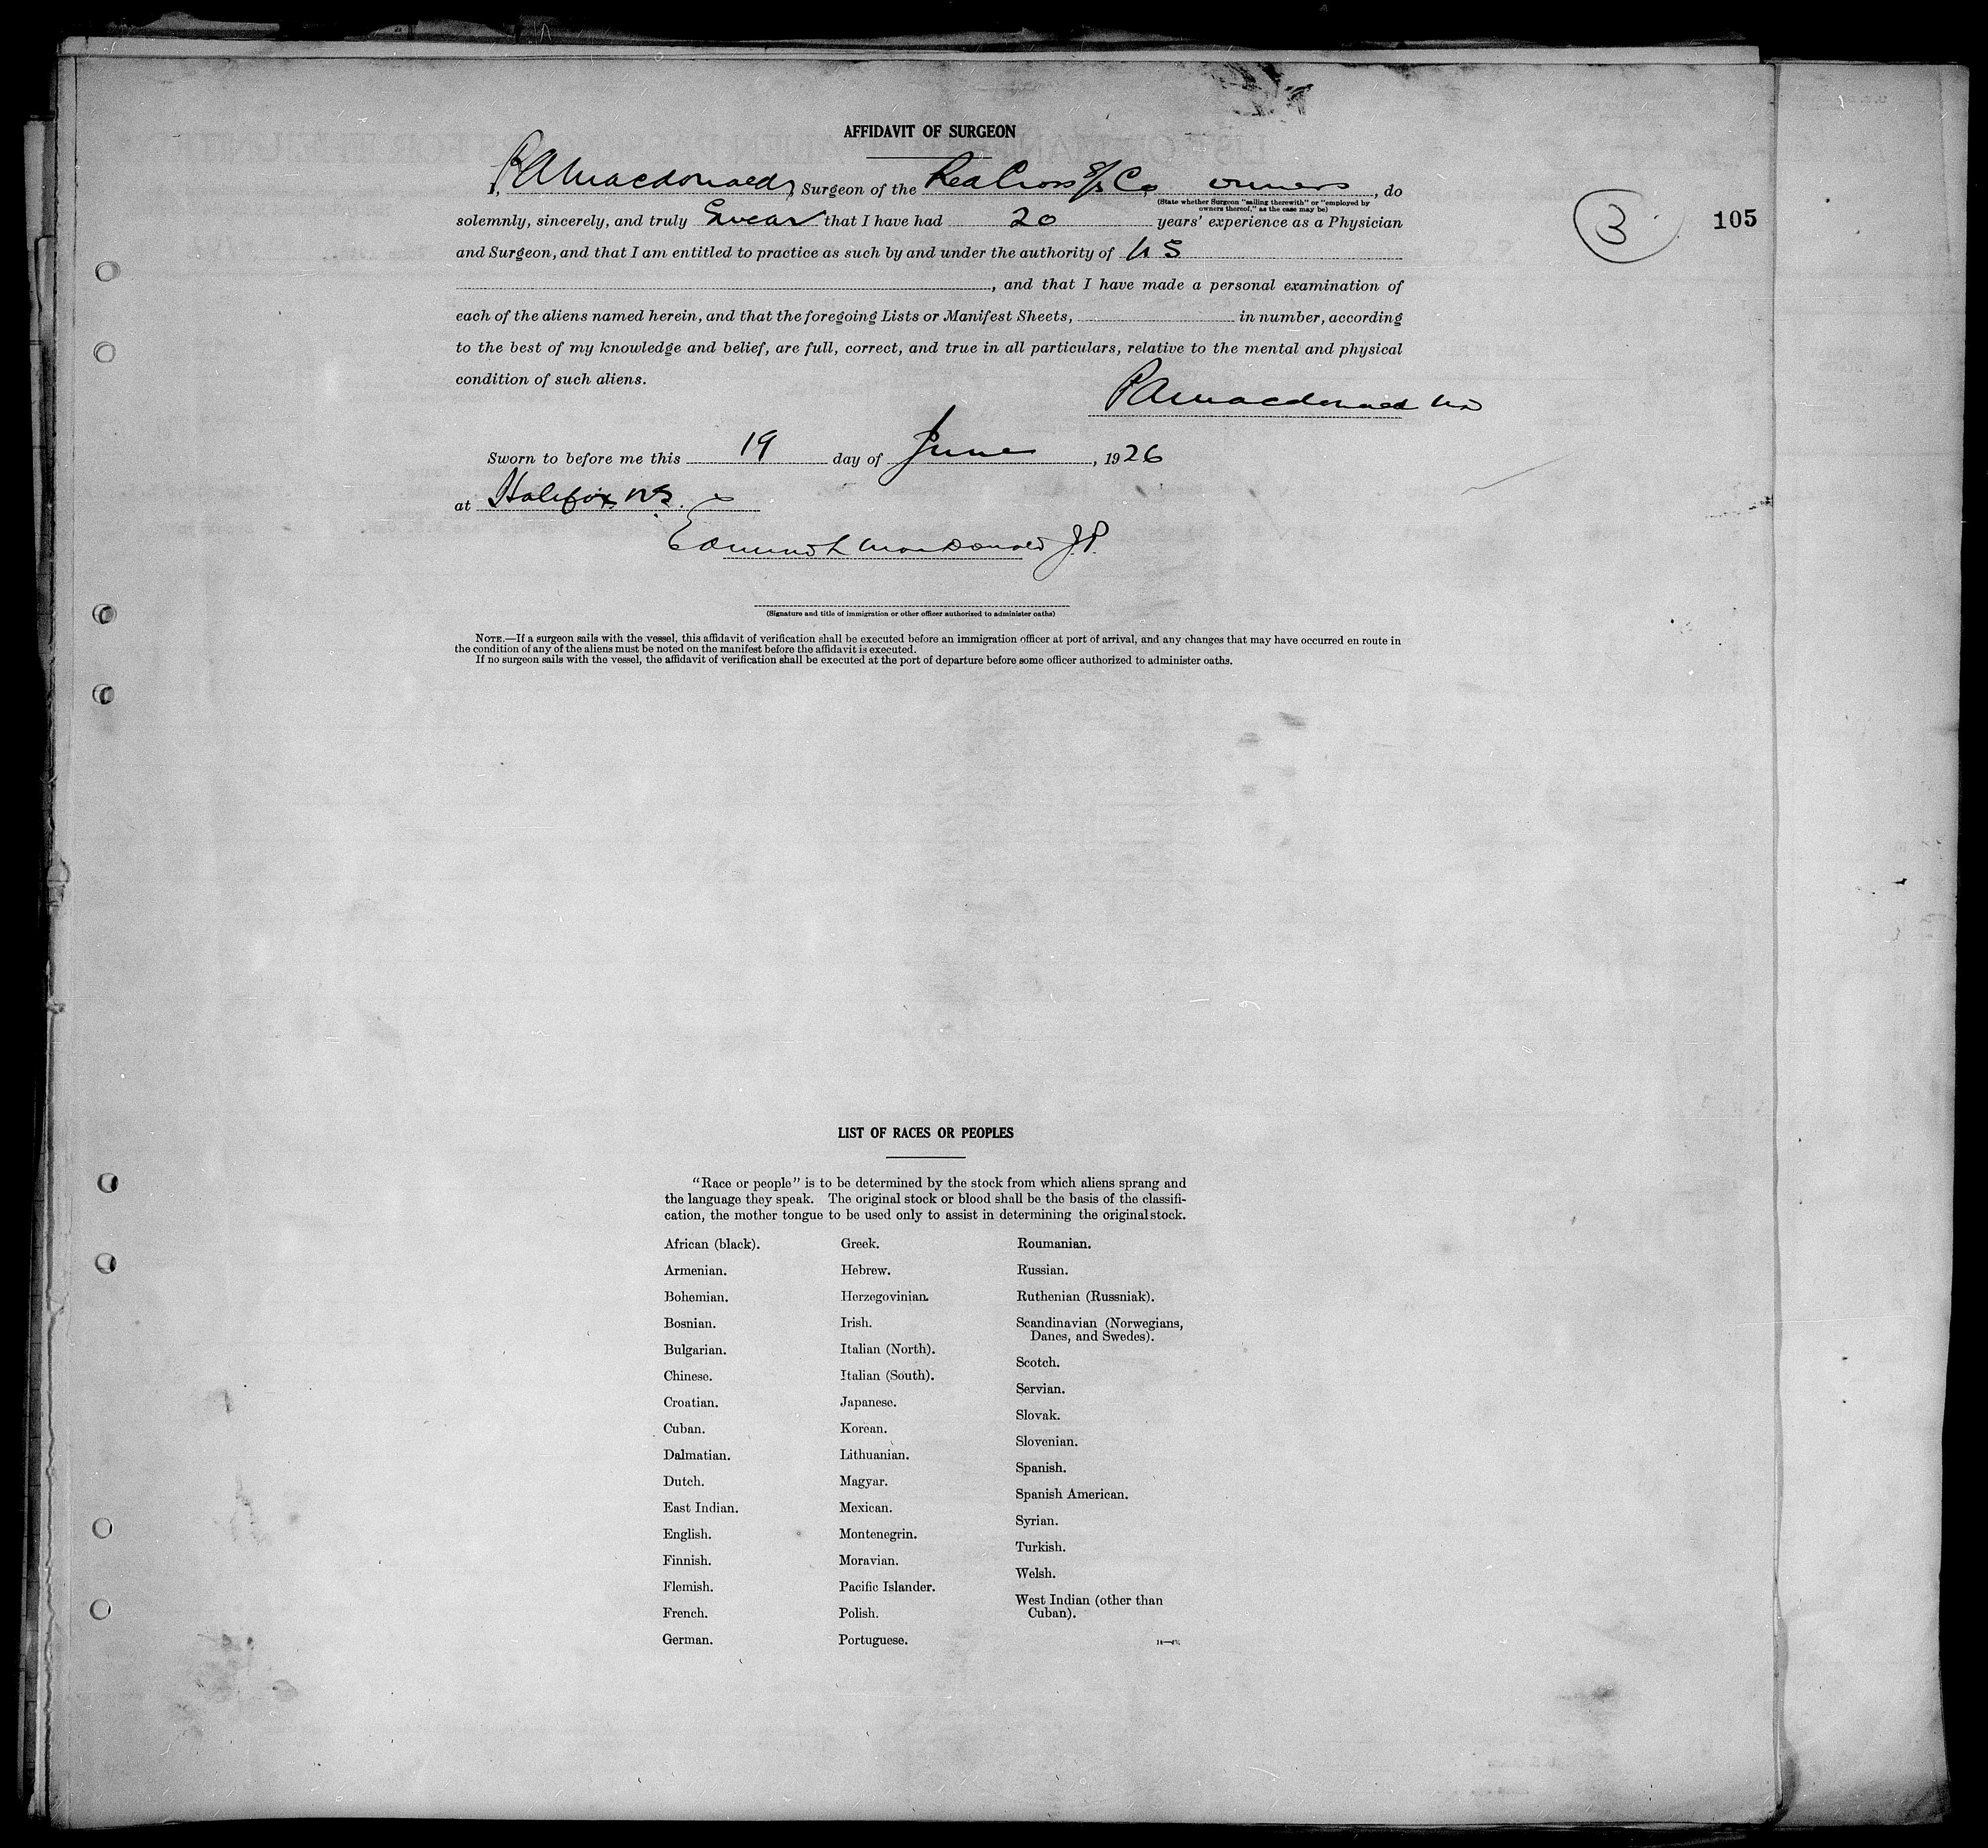 AFFIDAVIT OF SURGEON
I, P A Macdonald, Surgeon of the Red Cross S/S Co owners, do
(State whether Surgeon "sailing therewith" or "employed by
owners thereof," as the case may be)
solemnly, sincerely, and truly Swear that I have had 20 years' experience as a Physician
and Surgeon, and that I am entitled to practice as such by and under the authority of N S
, and that I have made a personal examination of
each of the aliens named herein, and that the foregoing Lists or Manifest Sheets, in number, according
to the best of my knowledge and belief, are full, correct, and true in all particulars, relative to the mental and physical
condition of such aliens.
P A Macdonald MD
Sworn to before me this 19 day of June, 1926
at Halifax NS.
Edmund L MacDonald J.P.
(Signature and title of immigration or other officer authorized to administer oaths)
NOTE.—If a surgeon sails with the vessel, this affidavit of verification shall be executed before an immigration officer at port of arrival, and any changes that may have occurred en route in
the condition of any of the aliens must be noted on the manifest before the affidavit is executed.
If no surgeon sails with the vessel, the affidavit of verification shall be executed at the port of departure before some officer authorized to administer oaths.
3
105
LIST OF RACES OR PEOPLES
"Race or people" is to be determined by the stock from which aliens sprang and
the language they speak. The original stock or blood shall be the basis of the classifi-
cation, the mother tongue to be used only to assist in determining the original stock.
African (black).
Armenian.
Bohemian.
Bosnian.
Bulgarian.
Chinese.
Croatian.
Cuban.
Dalmatian.
Dutch.
East Indian.
English.
Finnish.
Flemish.
French.
German.
Greek.
Hebrew.
Herzegovinian.
Irish.
Italian (North).
Italian (South).
Japanese.
Korean.
Lithuanian.
Magyar.
Mexican.
Montenegrin.
Moravian.
Pacific Islander.
Polish.
Portuguese.
Roumanian.
Russian.
Ruthenian (Russniak).
Scandinavian (Norwegians,
Danes, and Swedes).
Scotch.
Servian.
Slovak.
Slovenian.
Spanish.
Spanish American.
Syrian.
Turkish.
Welsh.
West Indian (other than
Cuban).